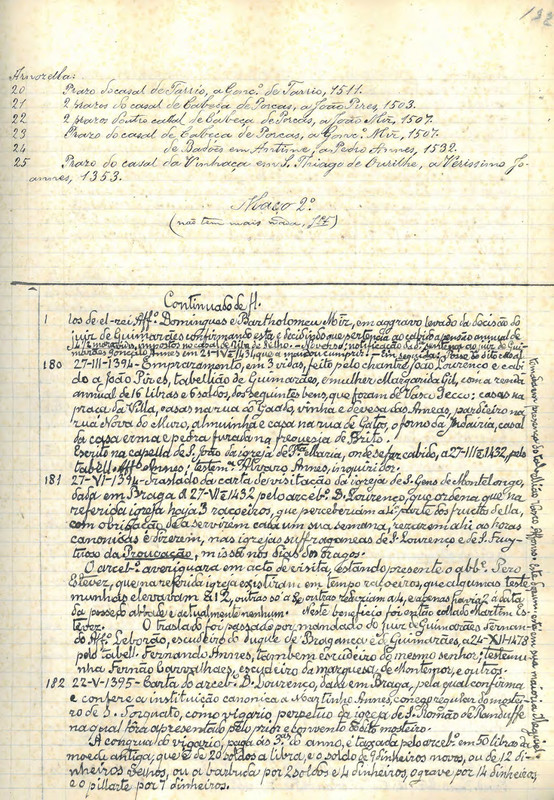 132
Armozella:
20 Prazo do casal de Tarrio, a Gonç.º de Tarrio, 1511.
21 2 prazos do casal de Cabeça de Porcas, a João Pires, 1503.
22 2 prazos doutro casal de Cabeça de Porcas, a João Miz, 1507.
23 Prazo do casal de Cabeça de Porcas, a Gonç.º Miz, 1507.
24 de Badões em Antime, a Pedro Annes, 1532.
25 Prazo do casal da Vinhaça em S. Thiago de Ourilhe, a Verissimo Jo-
annes, 1353.
Maço 2º
(não tem mais nada,
Continuado de fl.
los de el-rei Aff.º Domingues e Bartholomeu Miz, em aggravo levado da decisão do
juiz de Guimarães confirmando esta e decidindo que pertencia ao cabido a pensão annual de
impostos no casal de
marães Gonçalo Annes em 21-IV-1431, que a mandou cumprir. - Em seguida
180 27-III-1394 - Emprazamento, em 3 vidas, feito pelo chantre João Lourenço e cabi-
do a João Pires, tabellião de Guimarães, e mulher Margarida Gil, com a renda
annual de 16 libras e 6 soldos, dos seguintes bens, que foram de Vasco Secco: casas na
praça da Villa, casas na rua do Gado, vinha e devesa das Annecas, pardieiro na
rua Nova do Muro, almuinha e casa na rua de Gatos, o forno da Judairia, casal
da casa erma e pedra furada na freguesia de Brito.
Escrito na capella de S. João da igreja de S.ta Maria, onde se faz cabido, a 27-III-1432, pelo
tabell. Aff.º Annes; testem.ª Alvaro Annes, inquiridor.
181 27-VI-1394 - Traslado da carta de visitação da igreja de S. Gens de Montelongo,
dada em Braga a 27-VI-1432 pelo arceb.º D. Lourenço, que ordena que na
referida igreja haja 3 raçoeiros, que perceberiam a 4ª parte dos fructos della,
com obrigação de a servirem cada um sua semana, rezarem ahi as horas
canonicas e dizerem, nas igrejas suffraganeas de S. Lourenço e de S. Fruy-
tuoso da Provcação, missa nos dias dos oragos.
O arceb.º averiguara em acto de visita, estando presente o abb.º Pero
Estevez, que na referida igreja existiram em tempo raçoeiros, que algumas teste-
munhas elevavam a 12, outras só a 8 e outras reduziam a 4, e apenas havia 2 á data
da posse do abbade e actualmente nenhum. Neste beneficio foi então collado Martim Es-
tevez. O traslado foi passado por mandado do juiz de Guimarães Fernan-
do Aff.º Leborão, escudeiro do duque de Bragança e de Guimarães, a 24-XII-1478
pelo tabell. Fernando Annes, tambem escudeiro do mesmo senhor; testemu-
nha Fernão Carvalhaes, escudeiro da marquesa de Montemor, e outros.
182 22-V-1395 - Carta do arceb.º D. Lourenço, dada em Braga, pela qual confirma
e confere a instituição canonica a Martinho Annes, conego regular do mostei-
ro de S. Torquato, como vigario perpetuo da igreja de S. Romão de Randuffe
na qual fôra apresentado pelo prior e convento do dito mosteiro.
A congrua do vigario, paga ás 3ªs do anno, é taxada pelo arceb.º em 50 libras da
moeda antiga, que é de 20 soldos a libra, e o soldo de 9 dinheiros novos, ou de 12 di-
nheiros velhos, ou a barbuda por 2 soldos e 4 dinheiros, o grave por 14 dinheiros
e o pillarte por 7 dinheiros.
tabellião Vasco Affonso. Este pergaminho está em sua maioria illegivel.